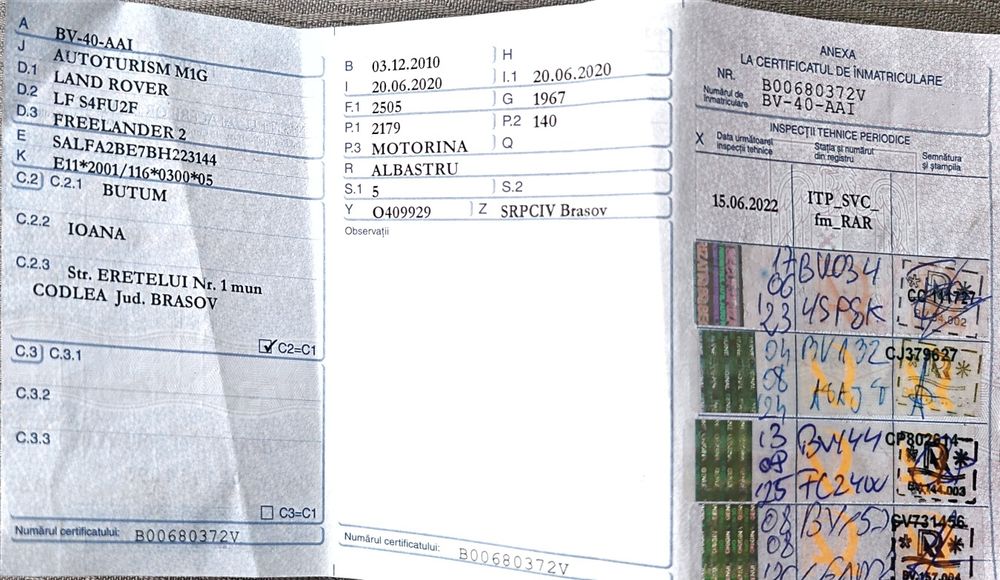 A BV-40-AAI
J AUTOTURISM M1G
D.1 LAND ROVER
D.2 LF S4FU2F
D.3 FREELANDER 2
E SALFA2BE7BH223144
K E11*2001/116*0300*05
C.2 C.2.1 BUTUM
C.2.2 IOANA
C.2.3 Str. ERETELUI Nr. 1 mun
CODLEA Jud. BRASOV
C2=C1
C.3 C.3.1
C.3.2
C.3.3
C3=C1
Numărul certificatului: B00680372V
B 03.12.2010 H
I 20.06.2020 I.1 20.06.2020
F.1 2505 G 1967
P.1 2179 P.2 140
P.3 MOTORINA Q
R ALBASTRU
S.1 5 S.2
Y O409929 Z SRPCIV Brasov
Observații
Numărul certificatului: B00680372V
ANEXA
LA CERTIFICATUL DE ÎNMATRICULARE
NR. B00680372V
Numărul de înmatriculare BV-40-AAI
INSPECȚII TEHNICE PERIODICE
X Data următoarei inspecții tehnice
Stația și numărul din registru
Semnătura și ștampila
15.06.2022 ITP_SVC_
fm_RAR
17 BV034
06
23 4SPSK
04 BV132 CJ379627
08
24
13 BV144 CP802614
09
25 FC2400 BV.144.003
08 BV152 GV731456
08